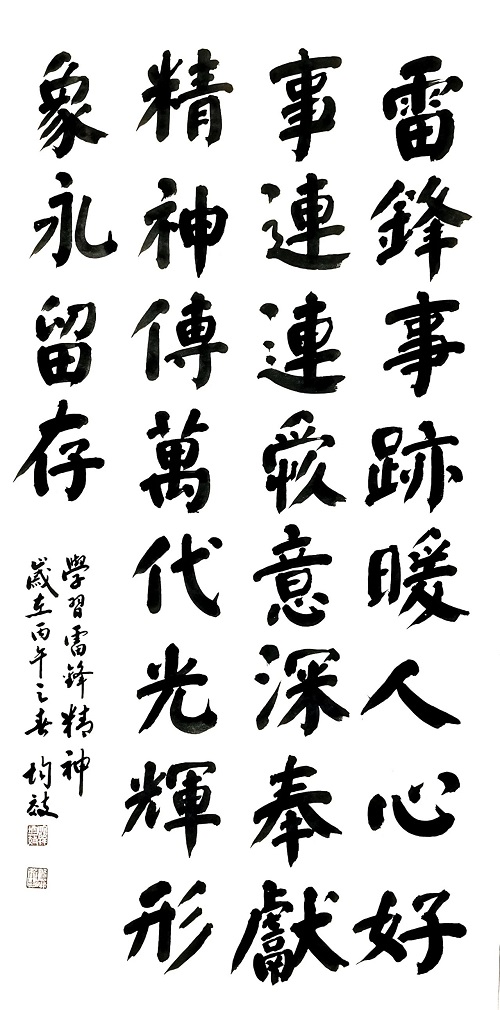 雷鋒事跡暖人心好
事連連愛意深奉獻
精神傳萬代光輝形
象永留存
學習雷鋒精神
歲在丙午之春 均